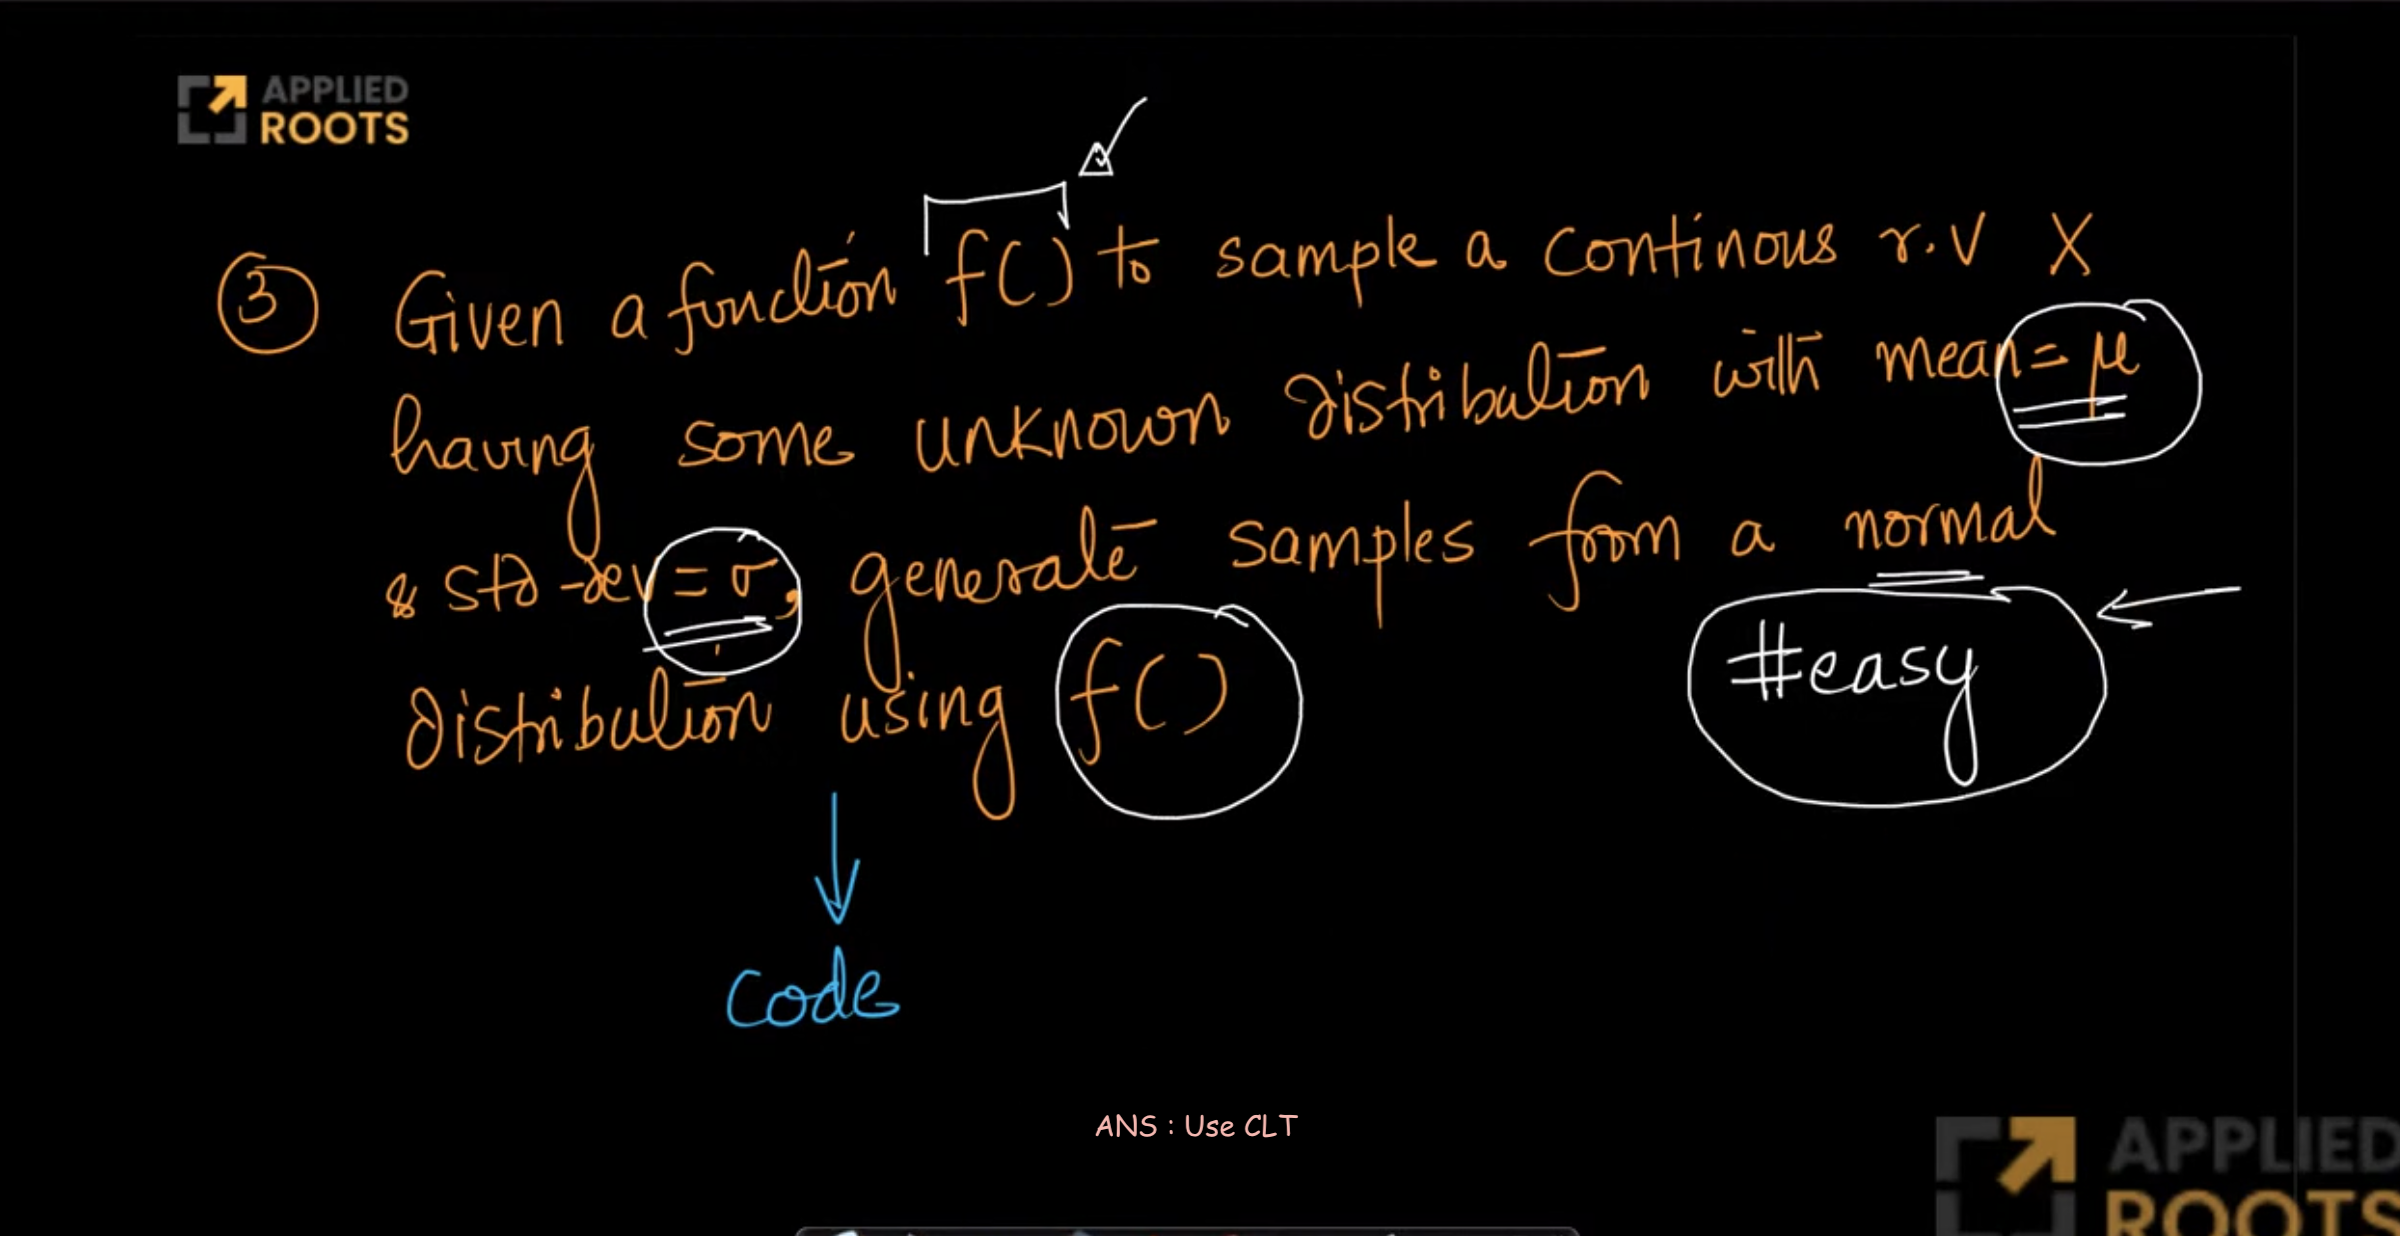 APPLIED
ROOTS
3 Given a function f() to sample a continous r.v X
having some unknown distribution with mean = μ
& std-dev = σ, generate samples from a normal
distribution using f()
#easy
Code
ANS : Use CLT
APPLIED
ROOTS